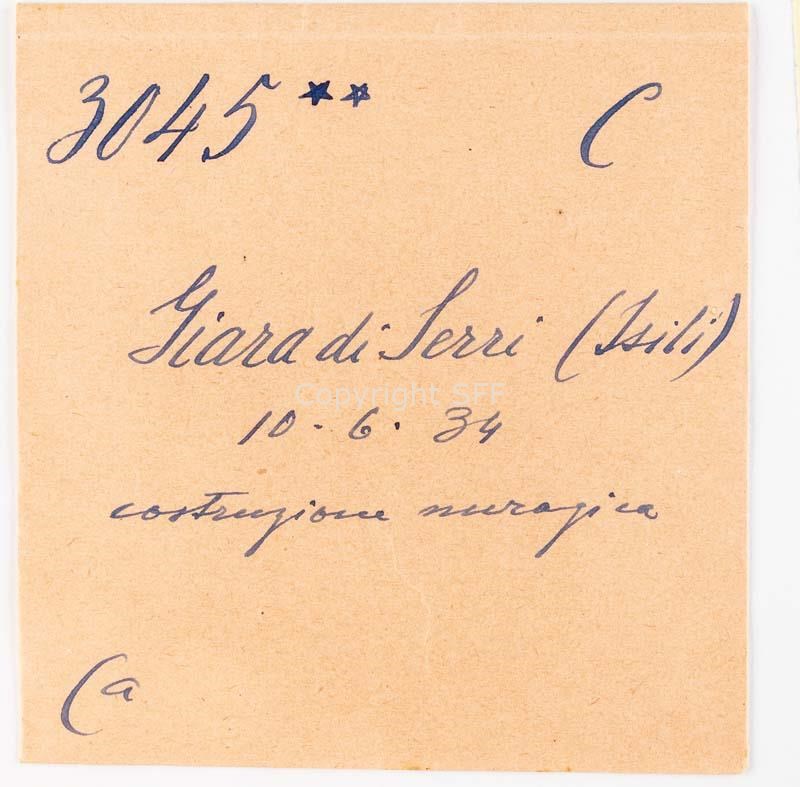 3045 ** C
Giara di Serri (Isili)
Copyright SFF
10 - 6 - 34
costruzione nuragica
Ca